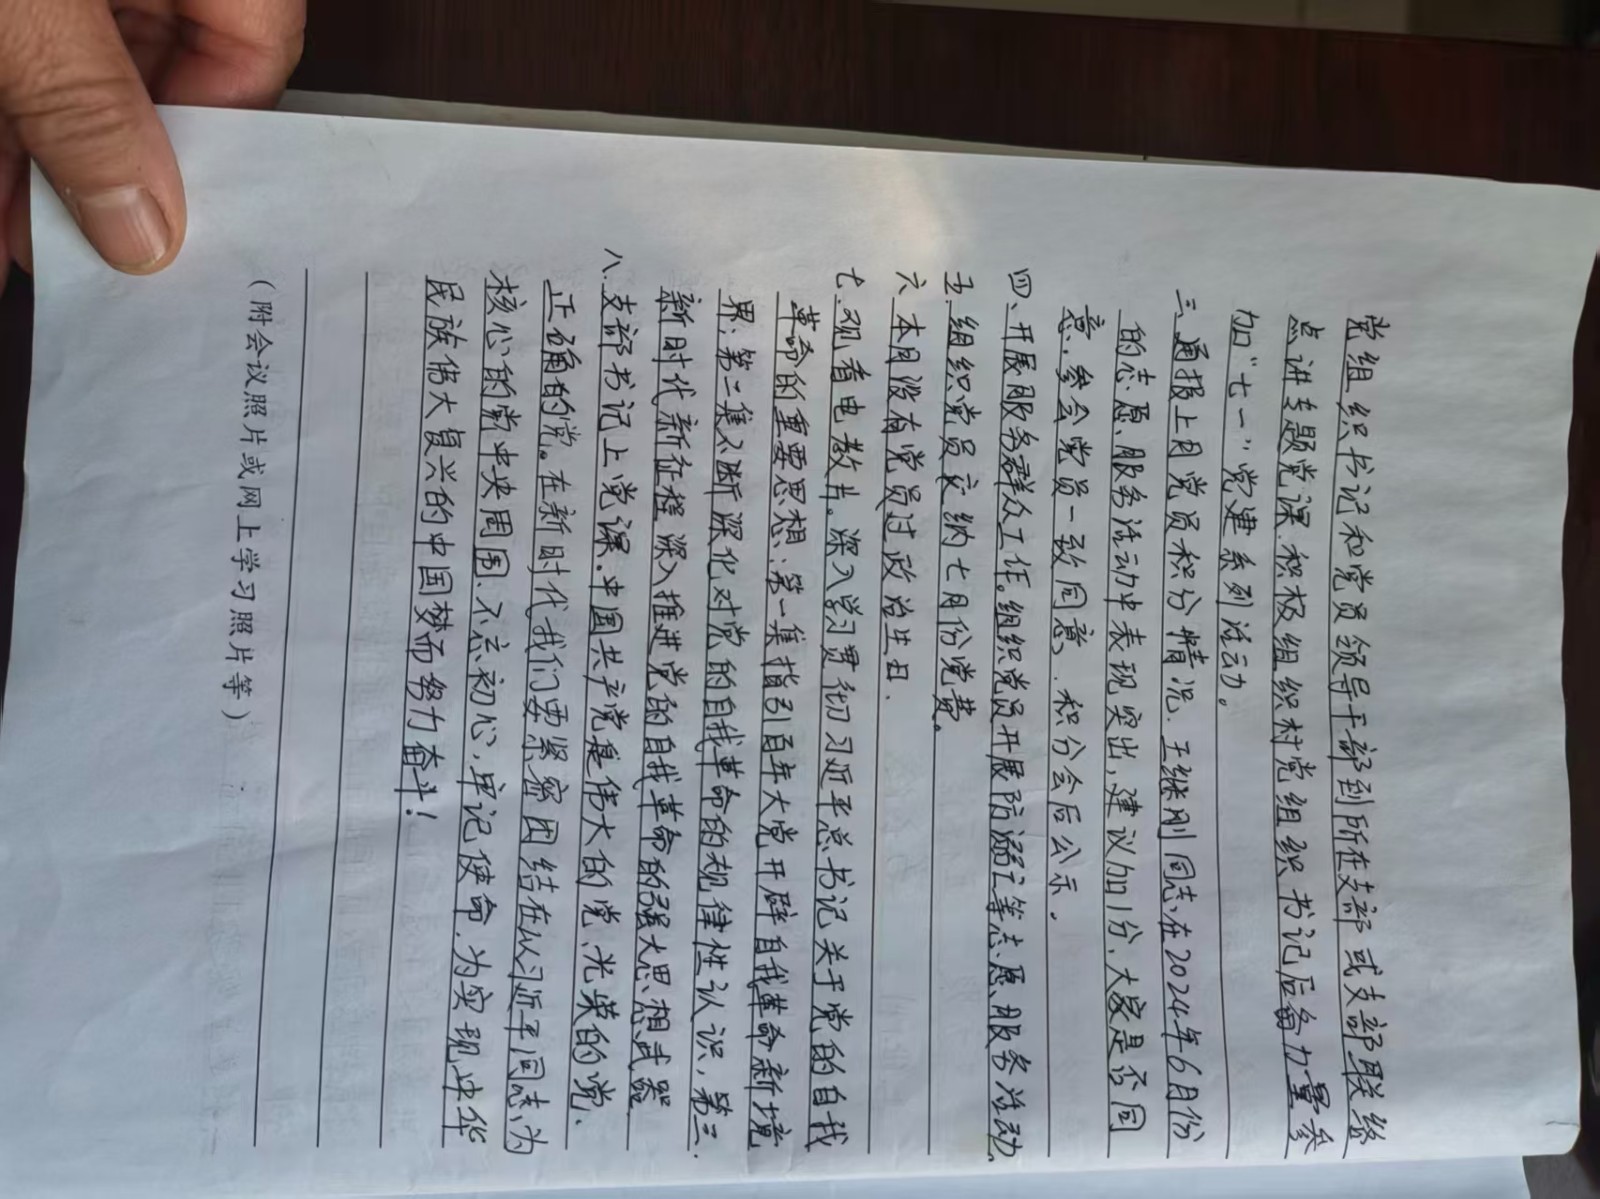 党组织书记和党员领导干部到所在支部或支部联络
点讲专题党课.积极组织村党组织书记后备力量参
加“七一”党建系列活动。
三.通报上月党员积分情况.王继刚同志在2024年6月份
的志愿服务活动中表现突出,建议加1分.大家是否同
意.参会党员一致同意.积分会后公示.
四、开展服务群众工作。组织党员开展防溺亡等志愿服务活动.
五.组织党员交纳七月份党费。
六.本月没有党员过政治生日.
七.观看电教片。深入学习贯彻习近平总书记关于党的自我
革命的重要思想:第一集指引百年大党开辟自我革命新境
界;第二集不断深化对党的自我革命的规律性认识,第三.
新时代新征程深入推进党的自我革命的强大思想武器
八.支部书记上党课.中国共产党是伟大的党、光荣的党、
正确的党。在新时代我们要紧密团结在以习近平同志为
核心的党中央周围.不忘初心,牢记使命.为实现中华
民族伟大复兴的中国梦而努力奋斗!
(附会议照片或网上学习照片等)